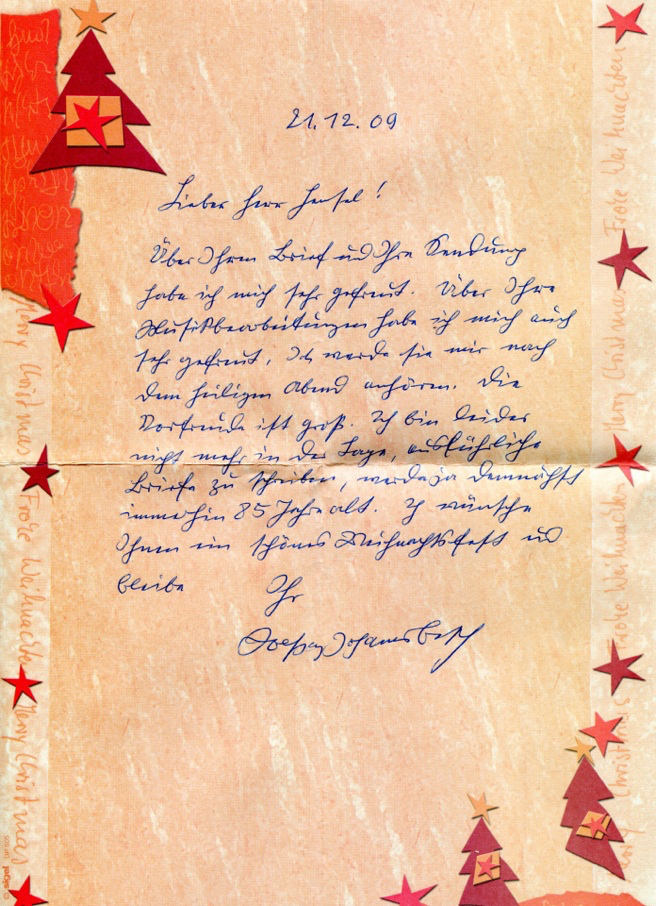 21.12.09
Lieber Herr Hensel!
Über Ihren Brief und Ihre Sendung
habe ich mich sehr gefreut. Über Ihre
Musikbearbeitungen habe ich mich auch
sehr gefreut, Ich werde sie mir nach
dem heiligen Abend anhören. Die
Vorfreude ist groß. Ich bin leider
nicht mehr in der Lage, ausführliche
Briefe zu schreiben, werde ja demnächst
immerhin 85 Jahre alt. Ich wünsche
Ihnen ein schönes Weihnachtsfest und
bleibe Ihr
Merry Christmas Frohe Weihnachten Merry Christmas
Frohe Weihnachten Merry Christmas Frohe Weihnachten Merry Christmas
sigel